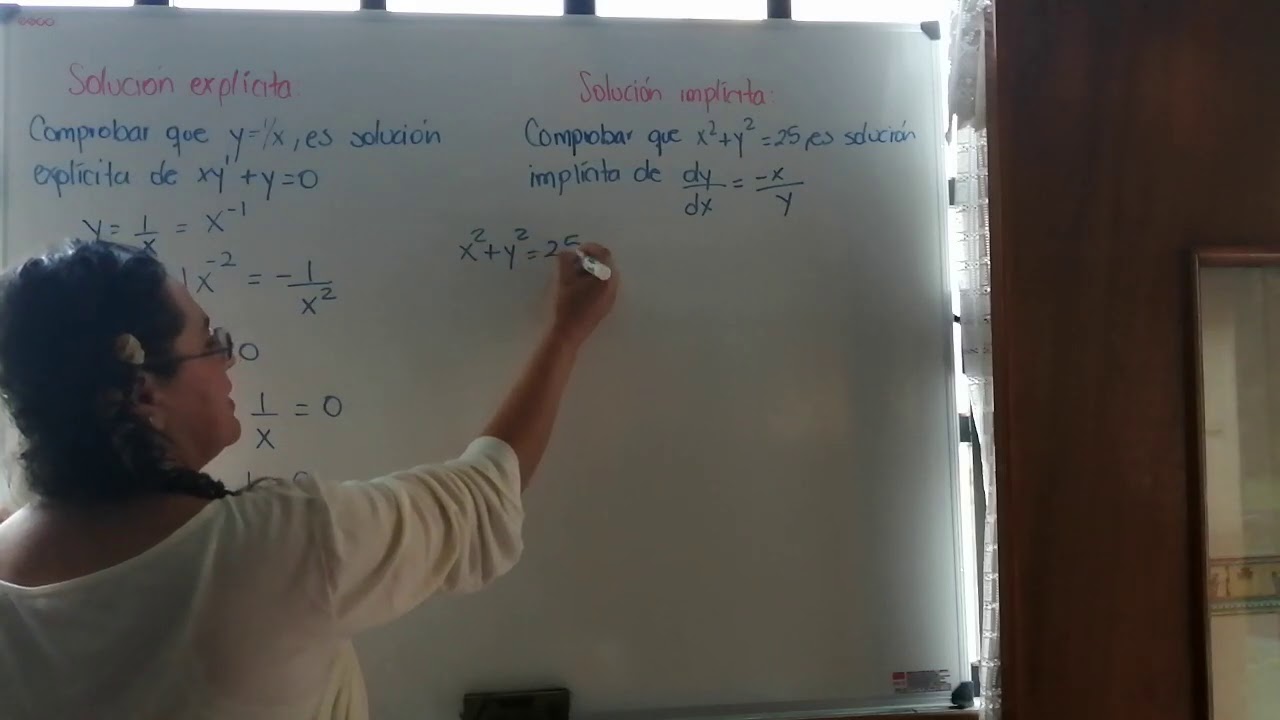 Solución explícita:
Comprobar que y=1/x, es solución
explícita de xy'+y=0
y = 1/x = x^-1
1x^-2 = -1/x^2
0
1/x = 0
Solución implícita:
Comprobar que x²+y²=25, es solución
implícita de dy/dx = -x/y
x²+y²=25